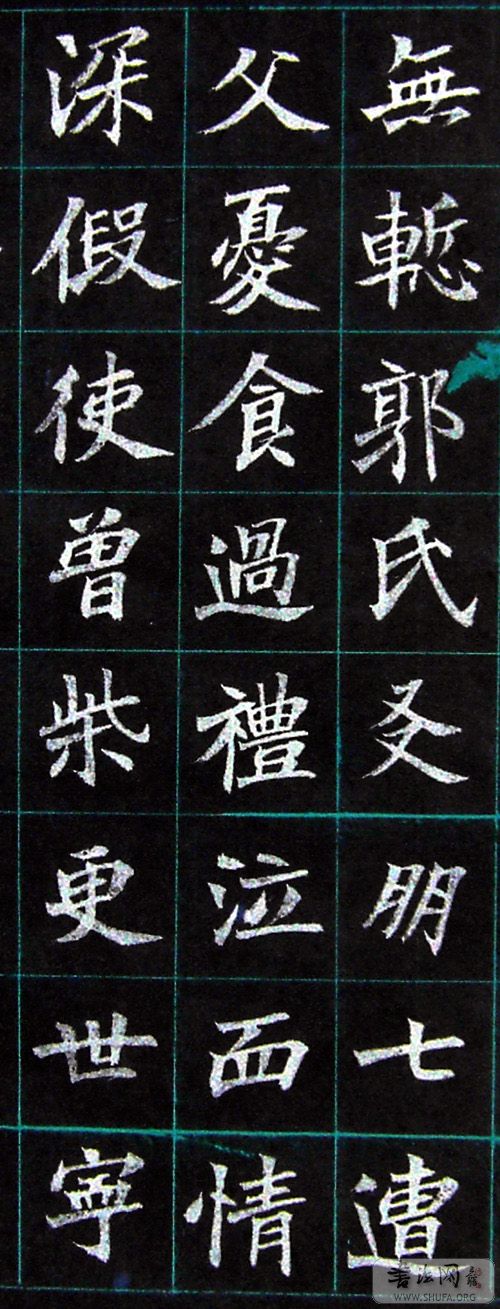 無慙郭氏友朋七遭
父憂食過禮泣血情
深假使曾柴更世寧
书法网
WWW.SHUFA.ORG